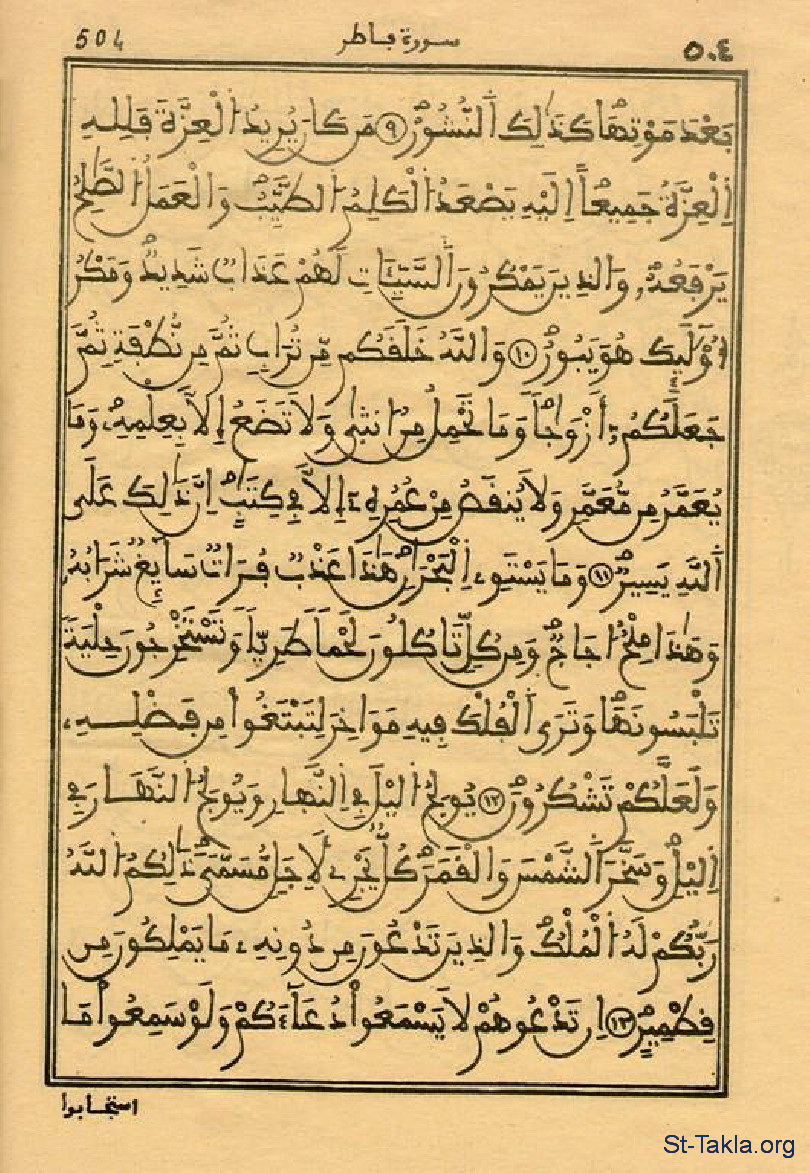 504 سورة فاطر ٥٠٤
بَعْدَ مَوْتِهَا كَذَٰلِكَ اَ۬لنُّشُورُ ٩ مَن كَانَ يُرِيدُ اُ۬لْعِزَّةَ فَلِلهِ
اِ۬لْعِزَّةُ جَمِيعاً اِلَيْهِ يَصْعَدُ اُ۬لْكَلِمُ اُ۬لطَّيِّبُ وَالْعَمَلُ اُ۬لصَّٰلِحُ
يَرْفَعُهُۥ وَالذِينَ يَمْكُرُونَ اَ۬لسَّيِّـَٔاتِ لَهُمْ عَذَابٌ شَدِيدٌ وَمَكْرُ
أُوْلَٰٓئِكَ هُوَ يَبُورُ ١٠ وَاللَّهُ خَلَقَكُم مِّن تُرَابٍ ثُمَّ مِن نُّطْفَةٍ ثُمَّ
جَعَلَكُمُۥٓ أَزْوَٰجاً وَمَا تَحْمِلُ مِنُ ا۟نثَىٰ وَلَا تَضَعُ إِلَّا بِعِلْمِهِۦ وَمَا
يُعَمَّرُ مِن مُّعَمَّرٍ وَلَا يُنقَصُ مِنْ عُمُرِهِۦٓ إِلَّا فِي كِتَٰبٍ اِنَّ ذَٰلِكَ عَلَى
اَ۬للَّهِ يَسِيرٌ ١١ وَمَا يَسْتَوِے اِ۬لْبَحْرَٰنِ هَٰذَا عَذْبٌ فُرَاتٌ سَآئِغٌ شَرَابُهُۥ
وَهَٰذَا مِلْحٌ ا۟جَاجٌ وَمِن كُلٍّ تَاكُلُونَ لَحْماً طَرِيّاً وَتَسْتَخْرِجُونَ حِلْيَةً
تَلْبَسُونَهَا وَتَرَى اَ۬لْفُلْكَ فِيهِ مَوَاخِرَ لِتَبْتَغُوا۟ مِن فَضْلِهِۦ
وَلَعَلَّكُمْ تَشْكُرُونَ ١٢ يُولِجُ اُ۬ليْلَ فِي اِ۬لنَّهَارِ وَيُولِجُ اُ۬لنَّهَارَ فِي
اِ۬ليْلِ وَسَخَّرَ اَ۬لشَّمْسَ وَالْقَمَرَ كُلٌّ يَجْرِے لِأَجَلٍ مُّسَمّىً ذَٰلِكُمُ اُ۬للَّهُ
رَبُّكُمْ لَهُ اُ۬لْمُلْكُ وَالذِينَ تَدْعُونَ مِن دُونِهِۦ مَا يَمْلِكُونَ مِن
قِطْمِيرٍ ١٣ اِن تَدْعُوهُمْ لَا يَسْمَعُوا۟ دُعَآءَكُمْ وَلَوْ سَمِعُوا۟ مَا
استجابوا
St-Takla.org